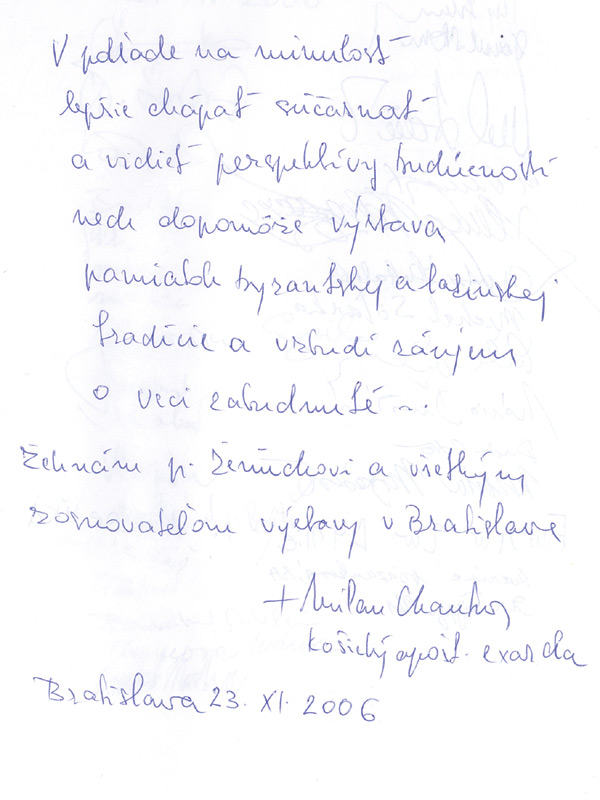 V pohľade na minulosť
lepšie chápať súčasnosť
a vidieť perspektívy budúcnosti
nech dopomôže výstava
pamiatok byzantskej a latinskej
tradície a vzbudí záujem
o veci zabudnuté ...
Žehnám p. Zeničkovi a všetkým
zosnovateľom výstavy v Bratislave
+ Milan Chautur
košický apošt. exarcha
Bratislava 23. XI. 2006